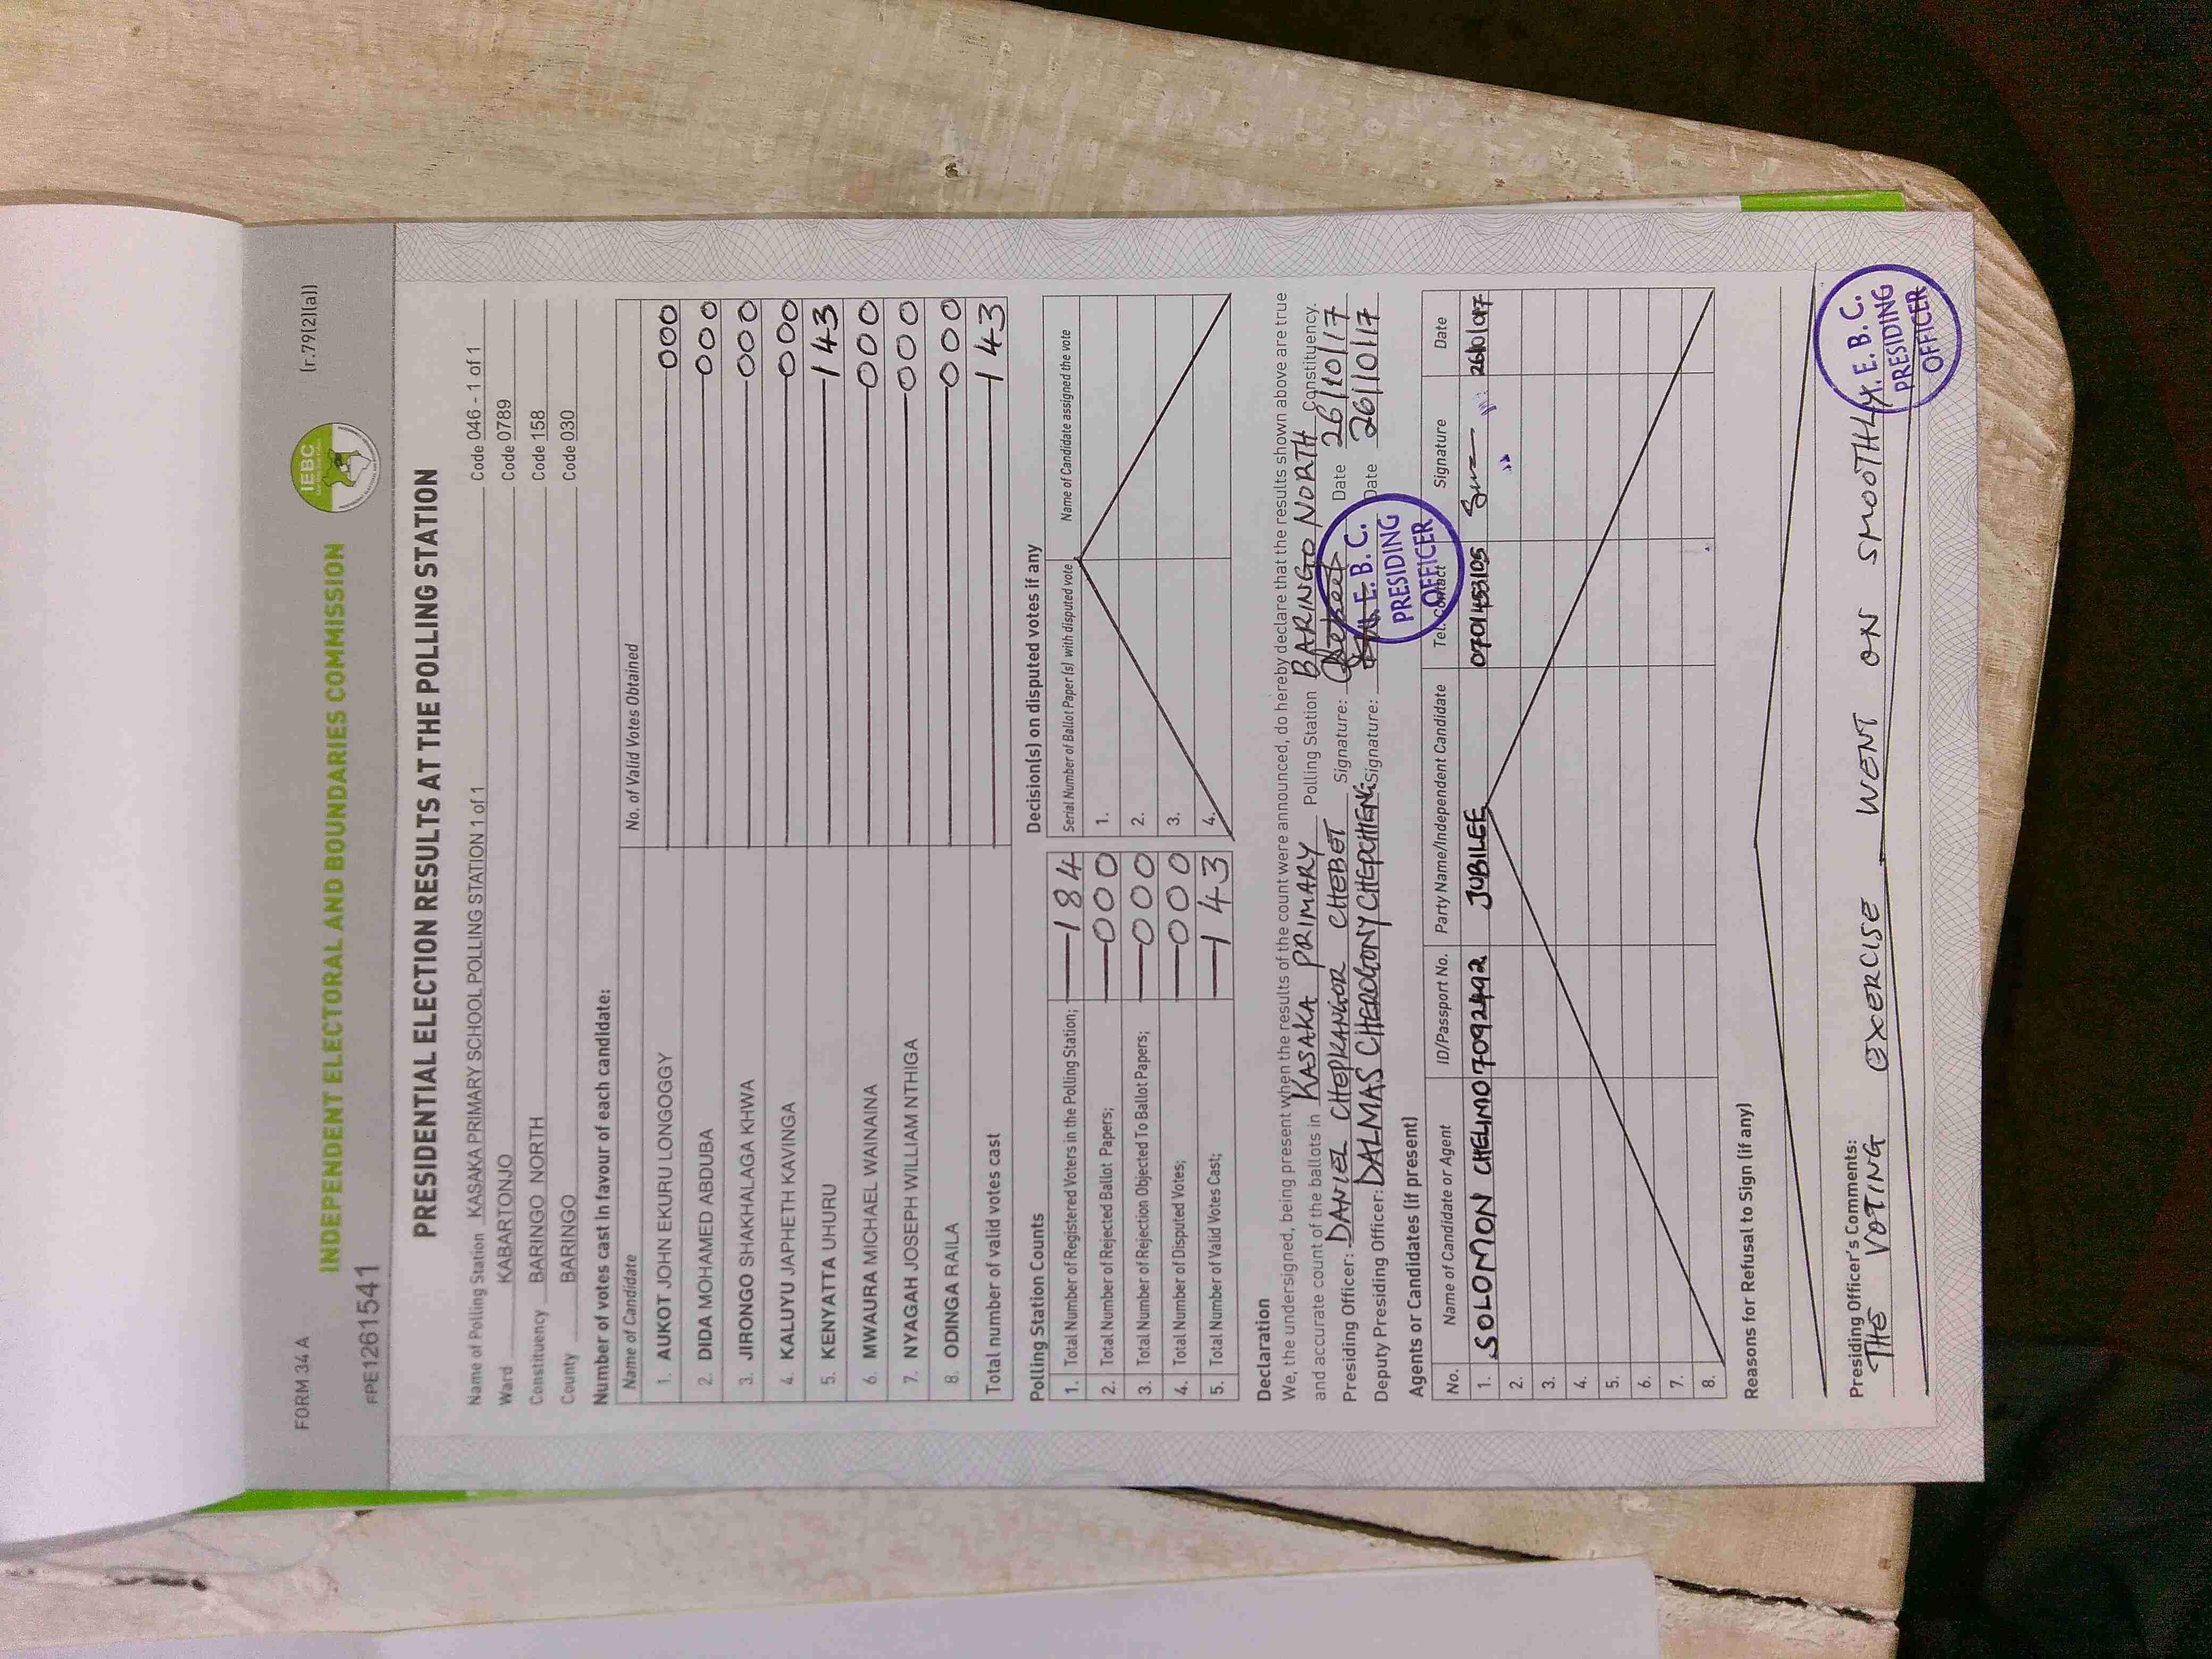 FORM 34 A
(r.79(2)(a))
INDEPENDENT ELECTORAL AND BOUNDARIES COMMISSION
IEBC
FPE1261541
PRESIDENTIAL ELECTION RESULTS AT THE POLLING STATION
Name of Polling Station KASAKA PRIMARY SCHOOL POLLING STATION 1 of 1 Code 046 - 1 of 1
Ward KABARTONJO Code 0789
Constituency BARINGO NORTH Code 158
County BARINGO Code 030
Number of votes cast in favour of each candidate:
Name of Candidate No. of Valid Votes Obtained
1. AUKOT JOHN EKURU LONGOGGY 000
2. DIDA MOHAMED ABDUBA 000
3. JIRONGO SHAKHALAGA KHWA 000
4. KALUYU JAPHETH KAVINGA 000
5. KENYATTA UHURU 143
6. MWAURA MICHAEL WAINAINA 000
7. NYAGAH JOSEPH WILLIAM NTHIGA 000
8. ODINGA RAILA 000
Total number of valid votes cast 143
Polling Station Counts
1. Total Number of Registered Voters in the Polling Station; 184
2. Total Number of Rejected Ballot Papers; 000
3. Total Number of Rejection Objected To Ballot Papers; 000
4. Total Number of Disputed Votes; 000
5. Total Number of Valid Votes Cast; 143
Decision(s) on disputed votes if any
Serial Number of Ballot Paper (s) with disputed vote Name of Candidate assigned the vote
1.
2.
3.
4.
Declaration
We, the undersigned, being present when the results of the count were announced, do hereby declare that the results shown above are true
and accurate count of the ballots in KASAKA PRIMARY Polling Station BARINGO NORTH Constituency.
Presiding Officer: DANIEL CHEPKANGOR CHEBET Signature: Date 26/10/17
Deputy Presiding Officer: DALMAS CHEROGONY CHEPCHIENG Signature: Date 26/10/17
I. E. B. C.
PRESIDING
OFFICER
Agents or Candidates (if present)
No. Name of Candidate or Agent ID/Passport No. Party Name/Independent Candidate Tel. Contact Signature Date
1. SOLOMON CHELIMO 7092492 JUBILEE
2.
3.
4.
5.
6.
7.
8.
Reasons for Refusal to Sign (if any)
Presiding Officer's Comments:
THE VOTING EXERCISE WENT ON SMOOTHLY.
I. E. B. C.
PRESIDING
OFFICER